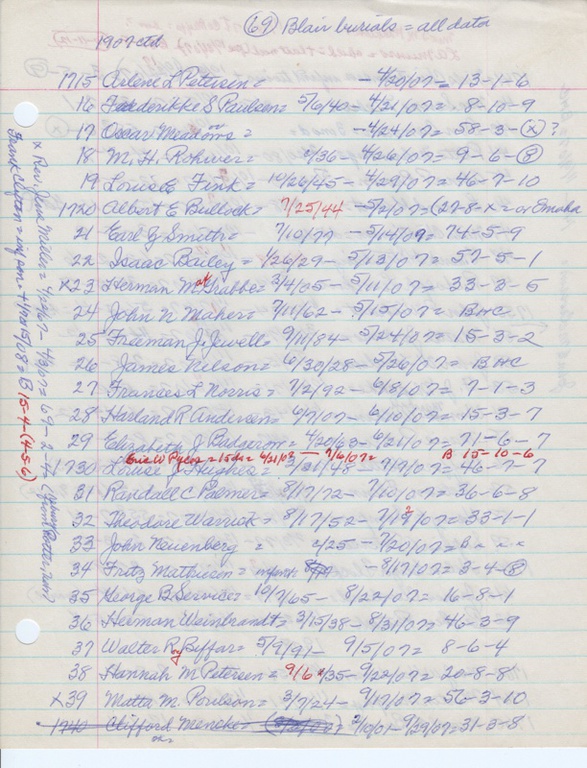 (69) Blair burials = all data
1907 ctd
1715 Arlene L Petersen = - 4/20/07 = 13-1-6
16 Frederikke S Paulsen = 5/6/40 - 4/21/07 = 8-10-9
17 Oscar Meadows = - 4/24/07 = 58-3-(x) ?
18 M. H. Rohwer = c/36 - 4/26/07 = 9-6-(B)
19 Louis E Fink = 10/26/45 - 4/29/07 = 46-7-10
1720 Albert E Bullock = 7/25/44 - 5/2/07 = (27-8-x = or Omaha
21 Earl G Smith = 7/10/77 - 5/14/07 = 74-5-9
22 Isaac Bailey = 1/26/29 - 5/13/07 = 57-5-1
x23 Herman Grabbe = 3/4/05 - 5/11/07 = 33-3-5
24 John N Maher = 7/11/62 - 5/15/07 = BHC
25 Freeman J. Jewell = 9/11/84 - 5/24/07 = 15-3-2
26 James Nelson = 6/30/28 - 5/26/07 = BHC
27 Frances L Norris = 7/2/92 - 6/8/07 = 7-1-3
28 Harland R Andersen = 6/7/07 - 6/10/07 = 15-3-7
29 Elizabeth J = 4/20/63 - 6/21/07 = 71-6-7
Eric W = 15da = 6/21/07 - 7/6/07 = B 15-10-6
1730 Louise J Hughes = 3/21/48 - 7/7/07 = 46-7-7
31 Randall C Palmer = 8/17/72 - 7/10/07 = 36-6-8
32 Theodore Warrick = 8/17/52 - 7/19/07 = 33-1-1
2
33 John Neuenberg = c/25 - 7/20/07 = B x x x
34 Fritz Mathiesen = infant - 8/17/07 = 3-4-(B)
35 George B. Service = 10/7/65 - 8/22/07 = 16-8-1
36 Herman Weinbrandt = 3/15/38 - 8/31/07 = 46-3-9
37 Walter Ray Beffar = 5/9/91 - 9/5/07 = 8-6-4
38 Hannah M Petersen = 9/6 /35 - 9/22/07 = 20-8-8
x39 Matta M. Poulson = 3/7/24 - 9/17/07 = 56-3-10
1740 Clifford Mencke = 2/10/01 - 9/29/07 = 31-3-8
x Rev. Jane Miller = 4/29/67 - 4/3/07 = 69-2-4
Frank Clifton = B 15-4-(4-5-6)